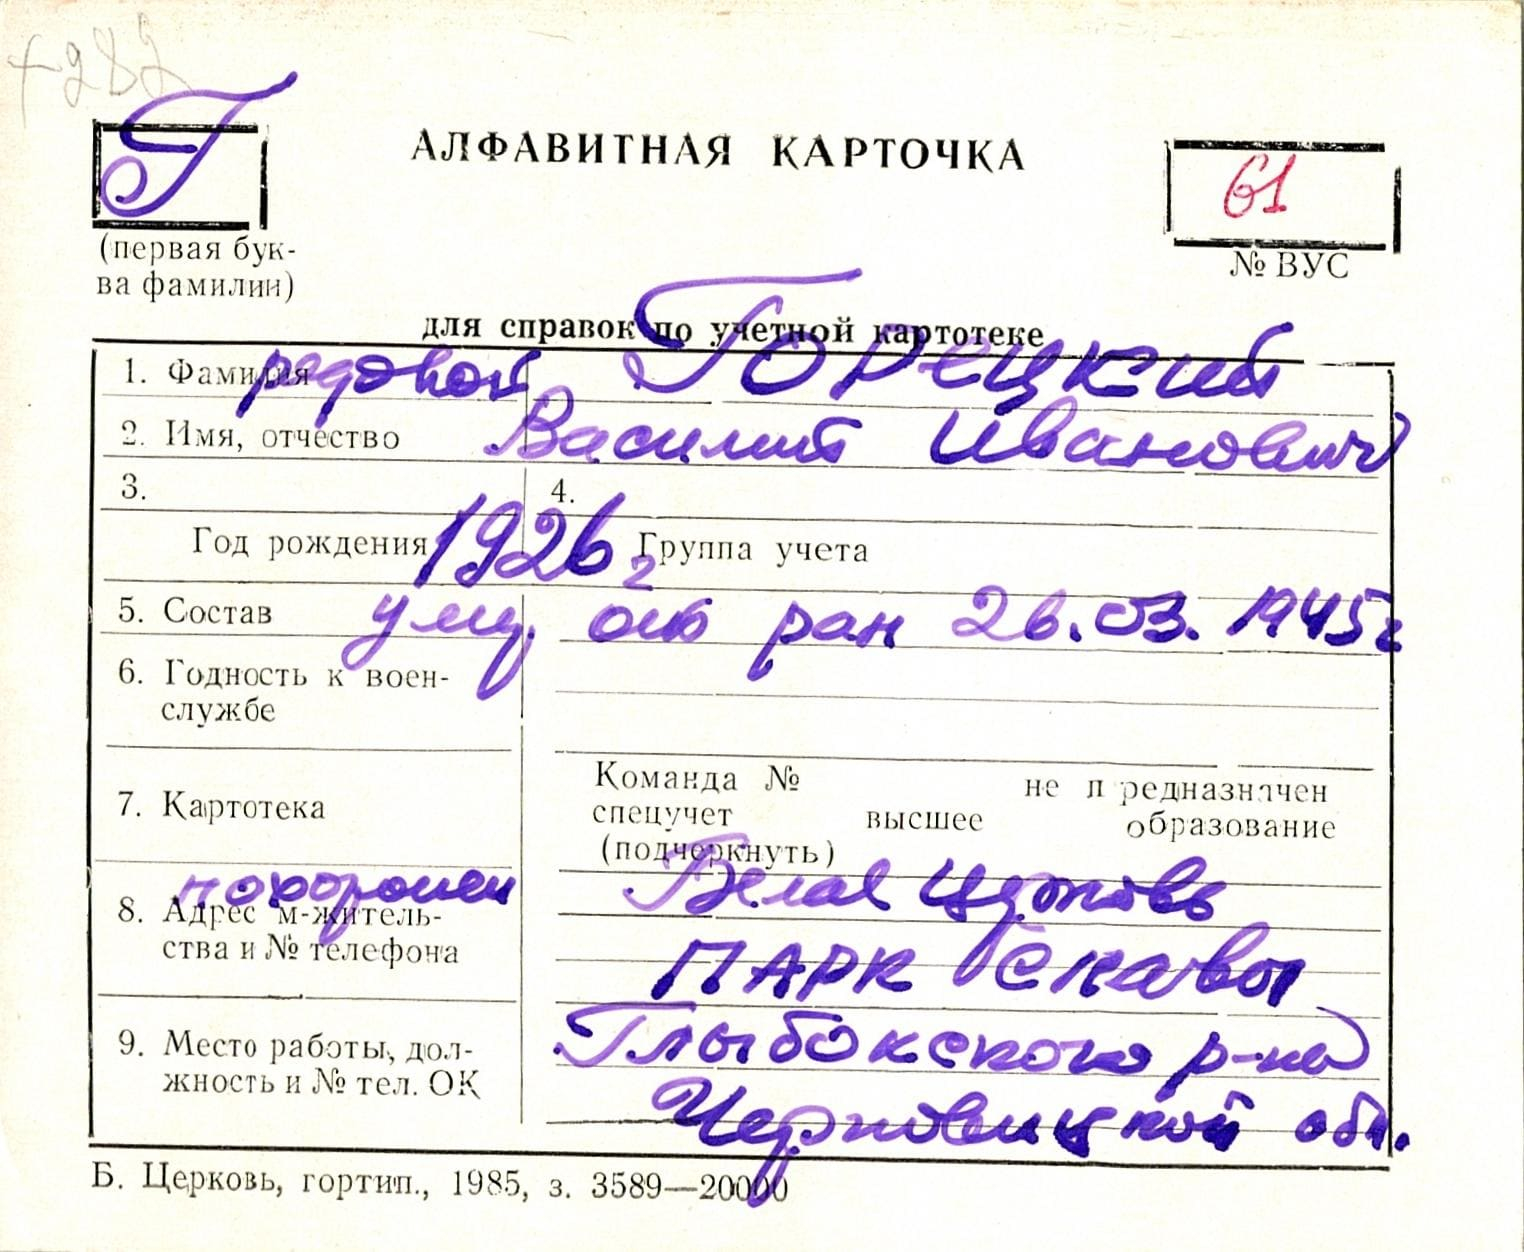 +282
Г
АЛФАВИТНАЯ КАРТОЧКА
61
(первая бук-
ва фамилии)
№ ВУС
для справок по учетной картотеке
1. Фамилия рядовой Горецкий
2. Имя, отчество Василий Иванович
3. 4.
Год рождения 1926 г Группа учета
5. Состав умер от ран 26.03.1945г
6. Годность к воен-
службе
7. Картотека
Команда № не предназначен
спецучет высшее образование
(подчеркнуть)
похоронен Белая Церковь
8. Адрес м-житель-
ства и № телефона
ПАРК Славы
Глыбокского р-на
9. Место работы, дол-
жность и № тел. ОК
Черновицкой обл.
Б. Церковь, гортип., 1985, з. 3589—20000